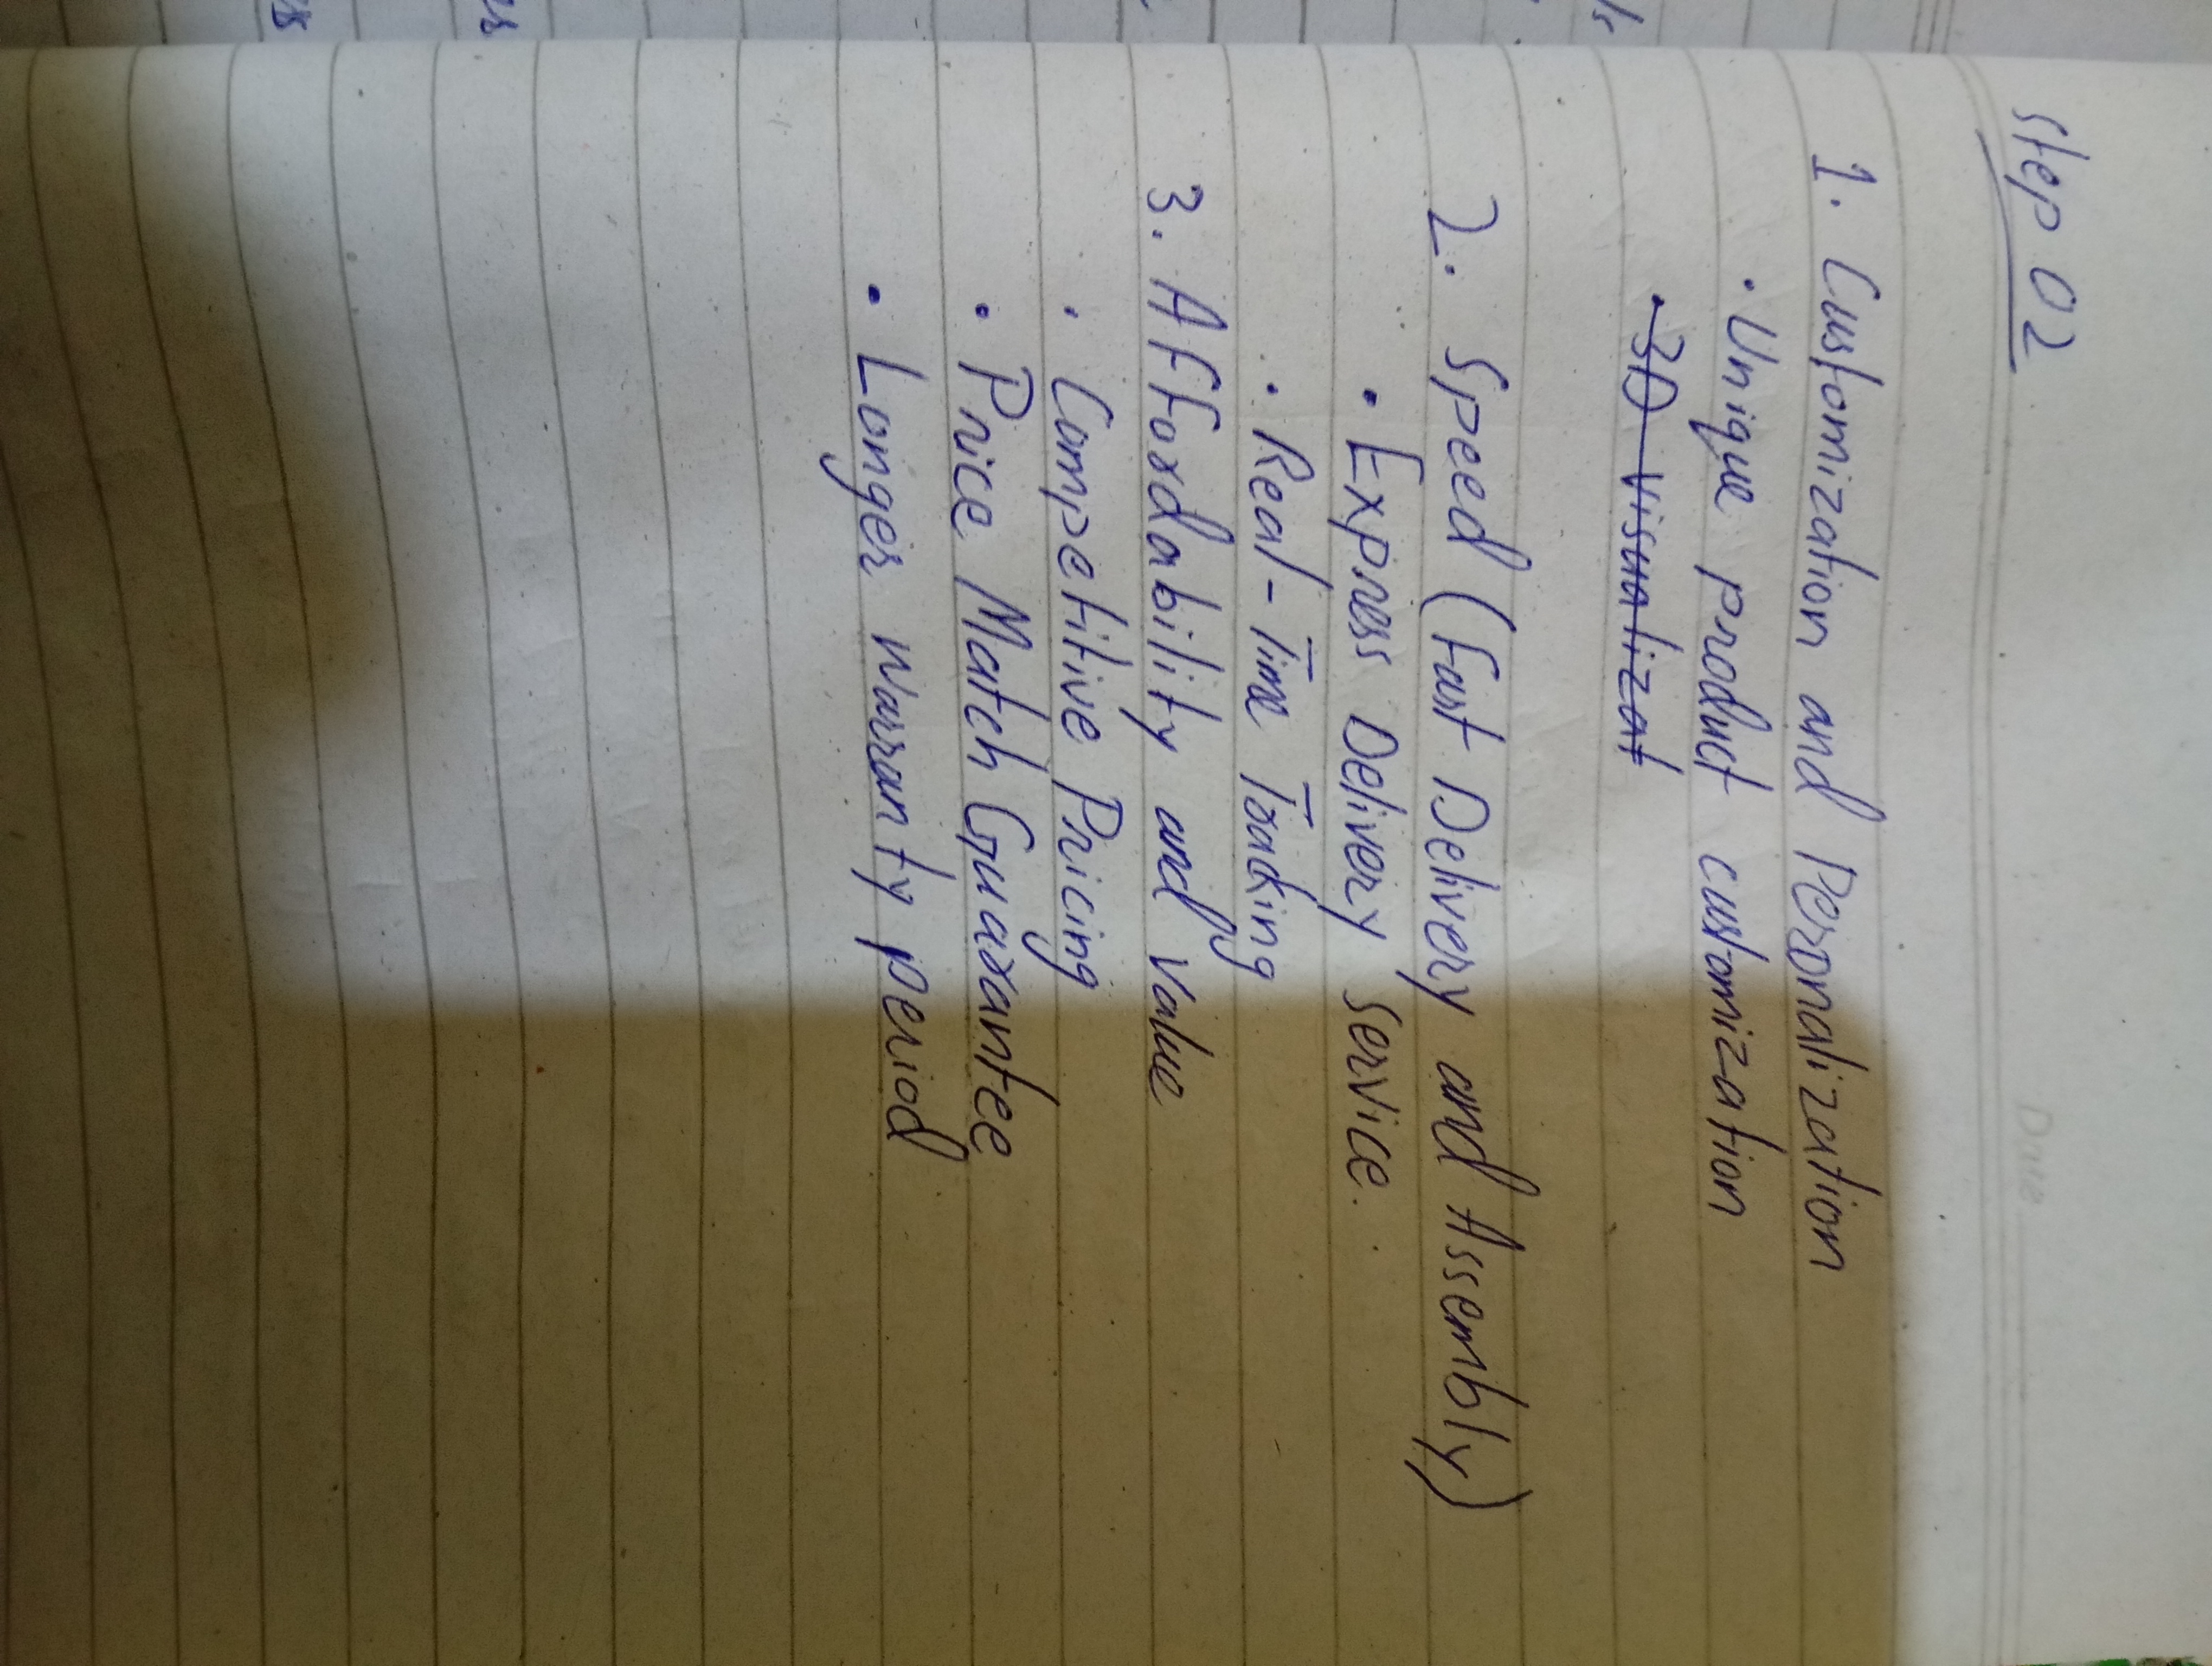 Step 02
Date
1. Customization and Pesonalization
• Unique product customization
• 3D visualizat
2. Speed (Fast Delivery and Assembly)
• Express Delivery Service.
• Real-Time Tracking
3. Affordability and Value
• Competitive Pricing
• Price Match Guarantee
• Longer Warranty period